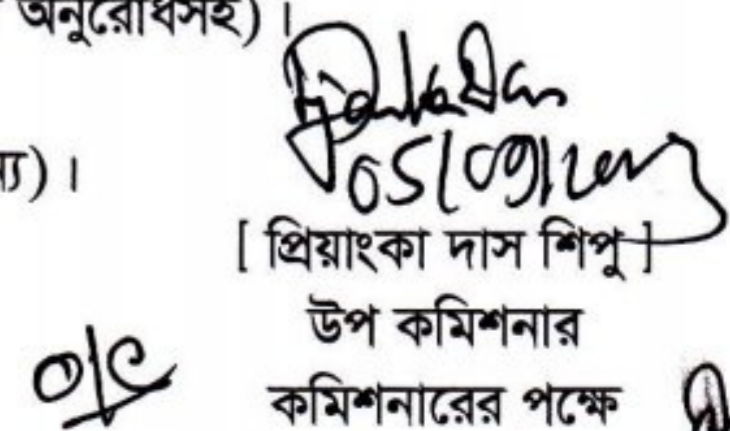 অনুরোধসহ)।
ন্য)।
[ প্রিয়াংকা দাস শিপু ]
উপ কমিশনার
কমিশনারের পক্ষে
o/c